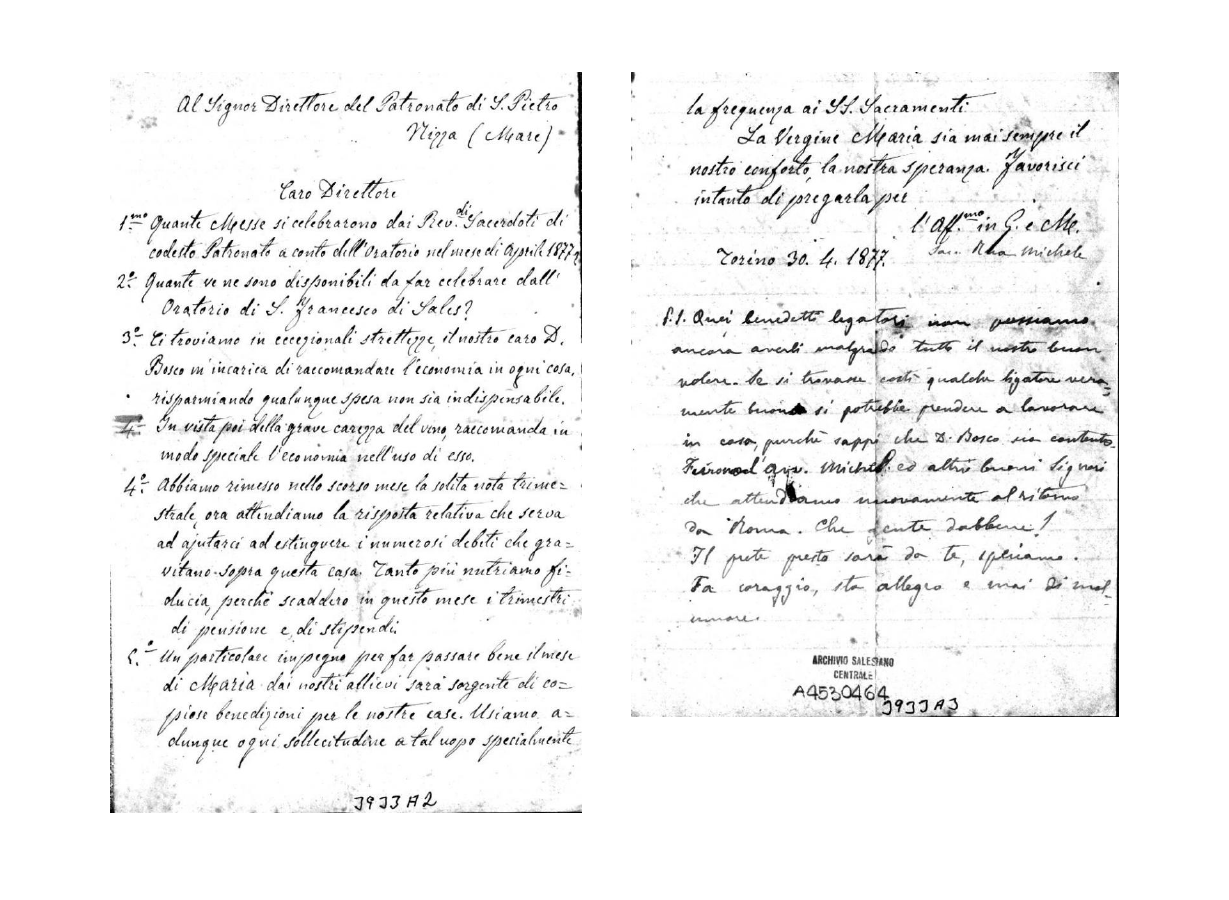 Al Signor Direttore del Patronato di S. Pietro
Nizza (Mare)
Caro Direttore
1.mo Quante Messe si celebrarono dai Rev.di Sacerdoti di
codesto Patronato a conto dell'Oratorio nel mese di Aprile 1877?
2.o Quante ve ne sono disponibili da far celebrare dall'
Oratorio di S. Francesco di Sales?
3.o Ci troviamo in eccezionali strettezze, il nostro caro D.
Bosco m'incarica di raccomandare l'economia in ogni cosa,
risparmiando qualunque spesa non sia indispensabile.
In vista poi della grave carezza del vino, raccomanda in
modo speciale l'economia nell'uso di esso.
4.o Abbiamo rimesso nello scorso mese la solita nota trime=
strale, ora attendiamo la risposta relativa che serva
ad ajutarci ad estinguere i numerosi debiti che gra=
vitano sopra questa casa. Tanto più nutriamo fi=
ducia, perchè scaddero in questo mese i trimestri
di pensione e di stipendi.
5.o Un particolare impegno per far passare bene il mese
di Maria dai nostri allievi sarà sorgente di co=
piose benedizioni per le nostre case. Usiamo, a=
dunque ogni sollecitudine a tal uopo specialmente
J933A2
la frequenza ai SS. Sacramenti.
La Vergine Maria sia mai sempre il
nostro conforto, la nostra speranza. Favorisci
intanto di pregarla per
l'Aff.mo in G. e M.
Sac. Rua Michele
Torino 30. 4. 1877.
P.S. Quei benedetti legatori non possiamo
ancora averli malgrado tutto il nostro buon
volere. Se si trovasse costì qualche ligatore vera=
mente buono si potrebbe prendere a lavorare
in casa, purchè sappi che D. Bosco sia contento.
l'avv. Michel ed altri buoni Signori
che attendiamo nuovamente al ritorno
da Roma. Che gente dabbene!
Il prete presto sarà da te, speriamo.
Fa coraggio, sta allegro e mai di mal=
umore.
ARCHIVIO SALESIANO
CENTRALE
A4530464
J933A3